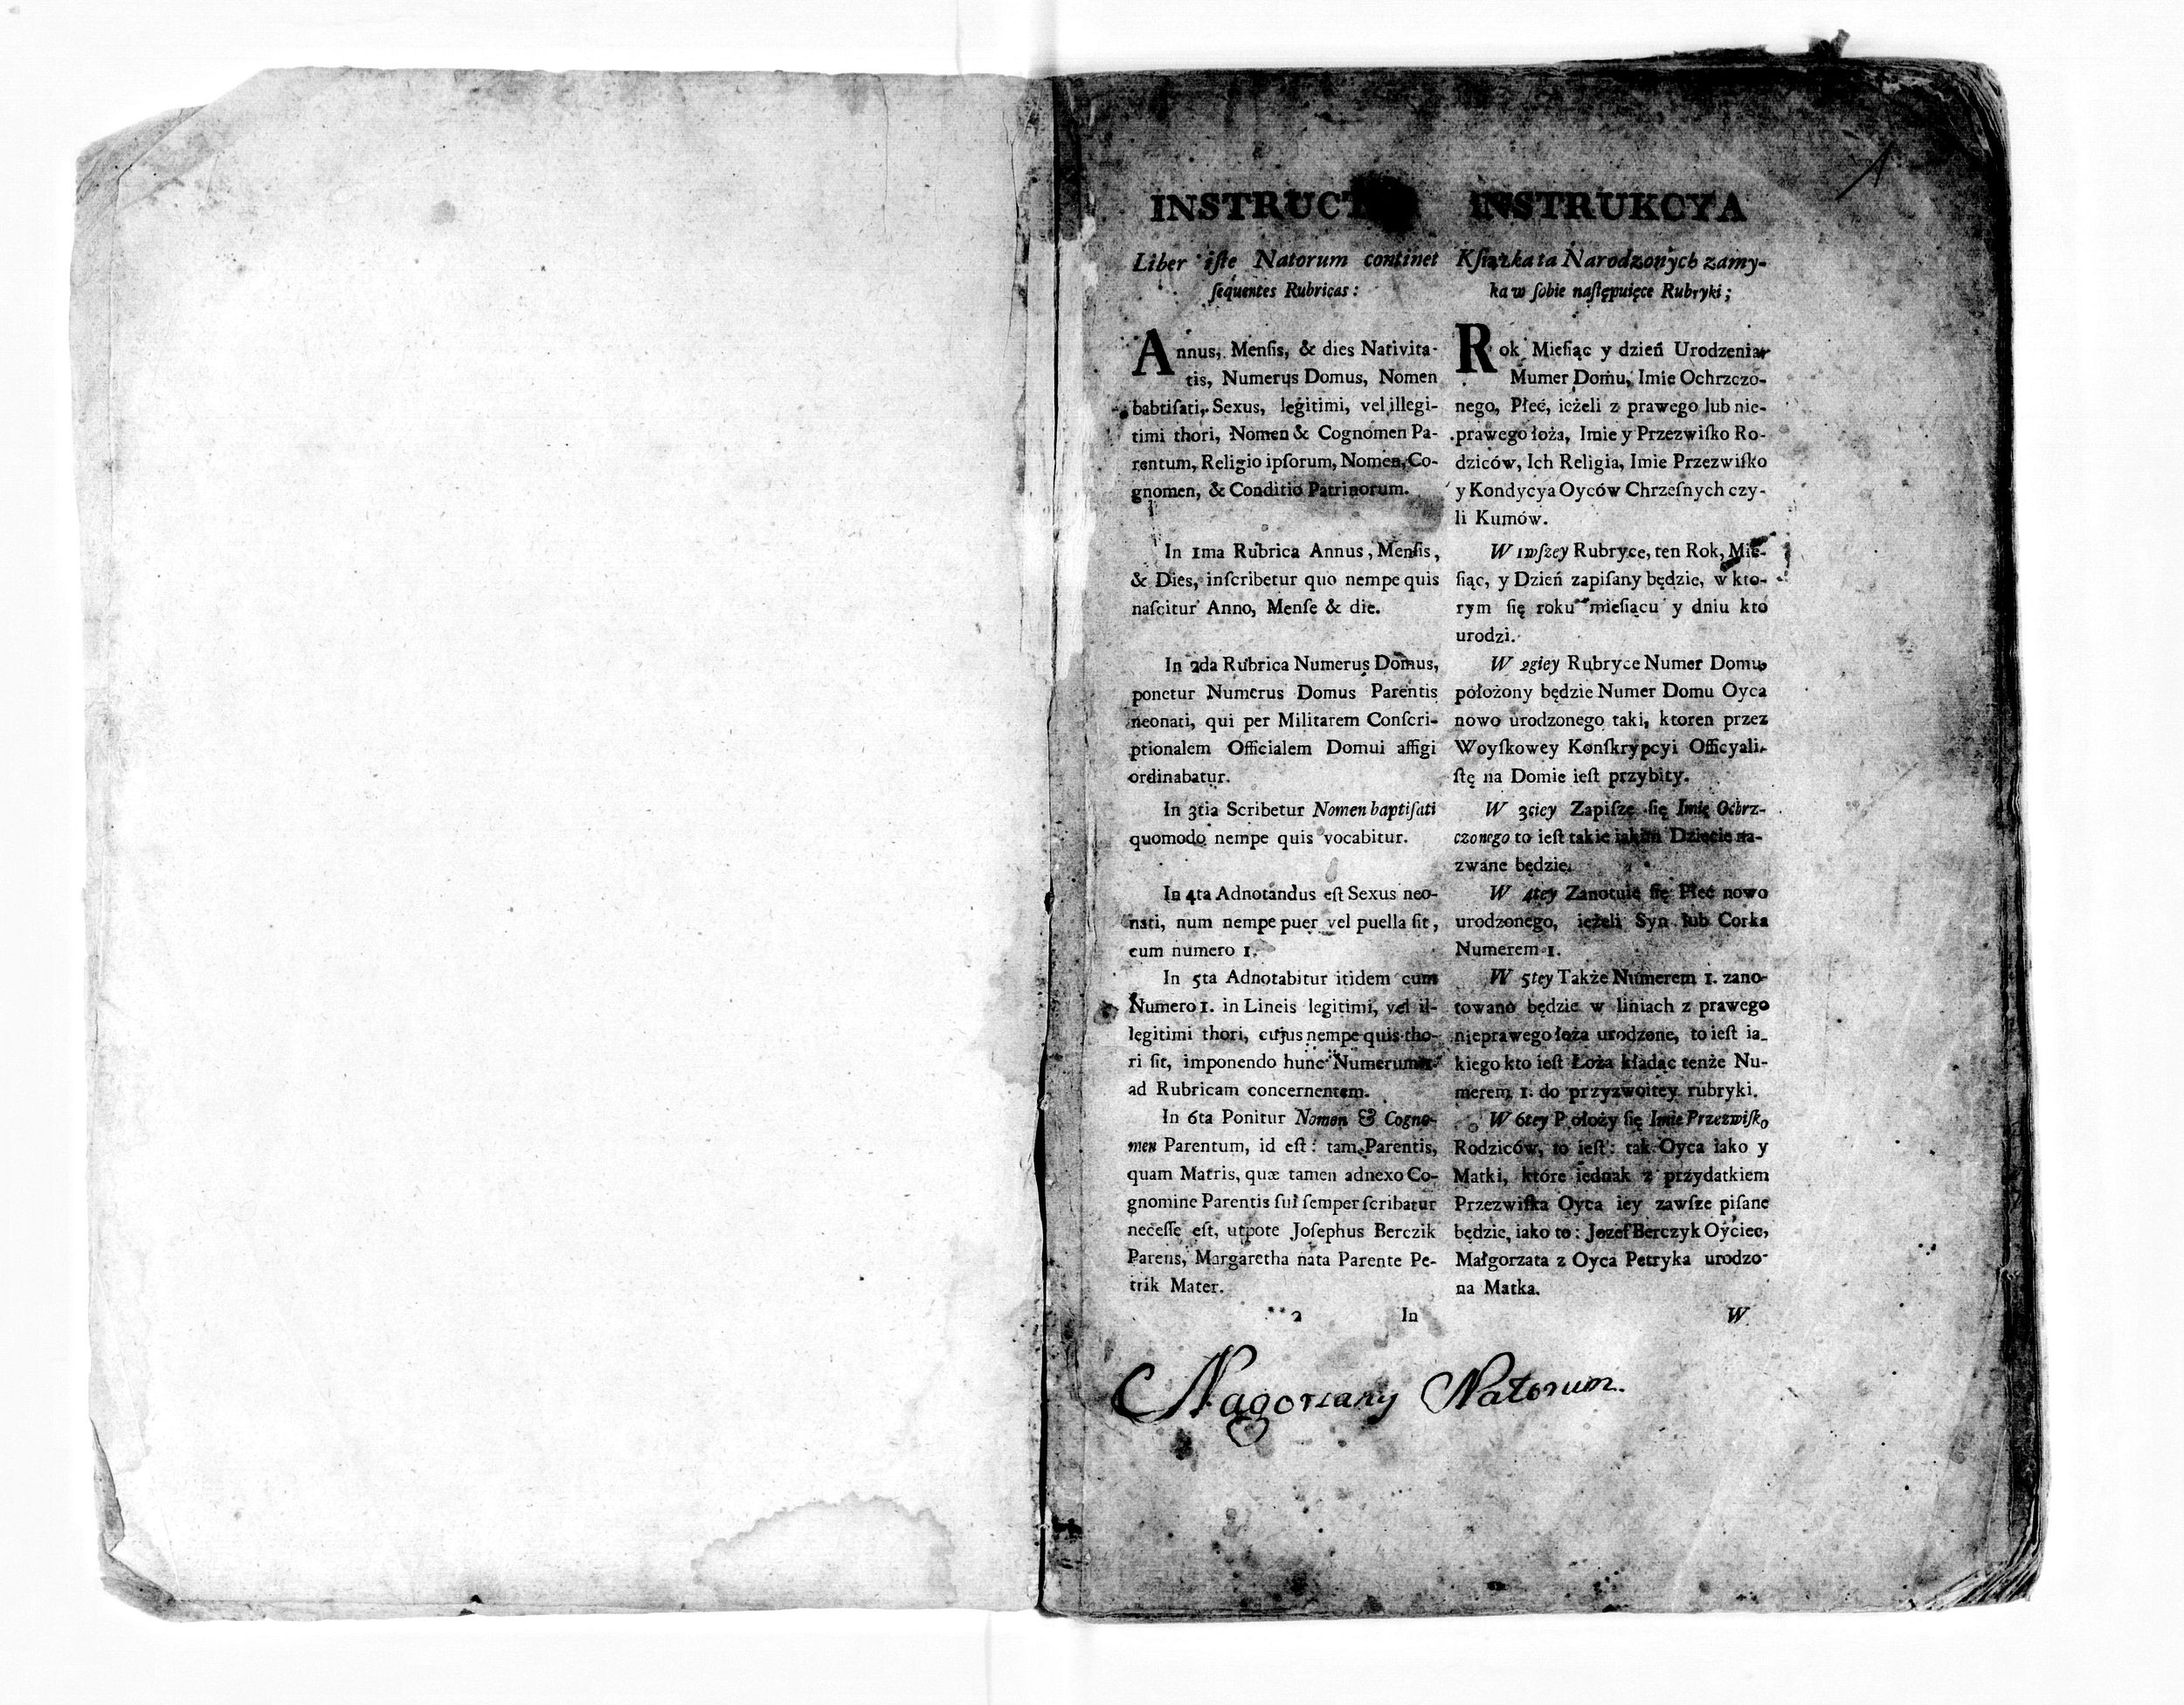 1
INSTRUCT
Liber iſte Natorum continet
ſequentes Rubricas:
Annus, Menſis, & dies Nativita-
tis, Numerus Domus, Nomen
babtiſati, Sexus, legitimi, vel illegi-
timi thori, Nomen & Cognomen Pa-
rentum, Religio ipſorum, Nomen, Co-
gnomen, & Conditio Patrinorum.
In 1ma Rubrica Annus, Menſis,
& Dies, inſcribetur quo nempe quis
naſcitur Anno, Menſe & die.
In 2da Rubrica Numerus Domus,
ponetur Numerus Domus Parentis
neonati, qui per Militarem Conſcri-
ptionalem Officialem Domui affigi
ordinabatur.
In 3tia Scribetur Nomen baptiſati
quomodo nempe quis vocabitur.
In 4ta Adnotandus eſt Sexus neo-
nati, num nempe puer vel puella ſit,
cum numero 1.
In 5ta Adnotabitur itidem cum
Numero 1. in Lineis legitimi, vel il-
legitimi thori, cujus nempe quis tho-
ri ſit, imponendo hunc Numerum
ad Rubricam concernentem.
In 6ta Ponitur Nomen & Cogno-
men Parentum, id eſt: tam Parentis,
quam Matris, quæ tamen adnexo Co-
gnomine Parentis ſui ſemper ſcribatur
neceſſe eſt, utpote Joſephus Berczik
Parens, Margaretha nata Parente Pe-
trik Mater.
2 In
INSTRUKCYA
Kſiążka ta Narodzonych zamy-
ka w ſobie naſtępuięce Rubryki;
Rok Mieſiąc y dzień Urodzenia
Mumer Domu, Imie Ochrzczo-
nego, Płeć, ieżeli z prawego lub nie-
prawego łoża, Imie y Przezwiſko Ro-
dziców, Ich Religia, Imie Przezwiſko
y Kondycya Oyców Chrzeſnych czy-
li Kumów.
W 1wſzey Rubryce, ten Rok, Mie-
ſiąc, y Dzień zapiſany będzie, w kto-
rym ſię roku mieſiącu y dniu kto
urodzi.
W 2giey Rubryce Numer Domu,
położony będzie Numer Domu Oyca
nowo urodzonego taki, ktoren przez
Woyſkowey Konſkrypcyi Officyali-
ſtę na Domie ieſt przybity.
W 3ciey Zapiſze ſię Imię Ochrz-
czonego to ieſt takie iakim Dziecie na-
zwane będzie.
W 4tey Zanotuie ſię Płeć nowo
urodzonego, ieżeli Syn lub Corka
Numerem 1.
W 5tey Także Numerem 1. zano-
towano będzie w liniach z prawego
nieprawego łoża urodzone, to ieſt ia-
kiego kto ieſt Łoża kładąc tenże Nu-
merem 1. do przyzwoitey rubryki.
W 6tey Położy ſię Imie Przezwiſko
Rodziców, to ieſt: tak Oyca iako y
Matki, które iednak z przydatkiem
Przezwiſka Oyca iey zawſze piſane
będzie, iako to: Jozef Berczyk Oyciec,
Małgorzata z Oyca Petryka urodzo-
na Matka.
W
Nagorzany Natorum.